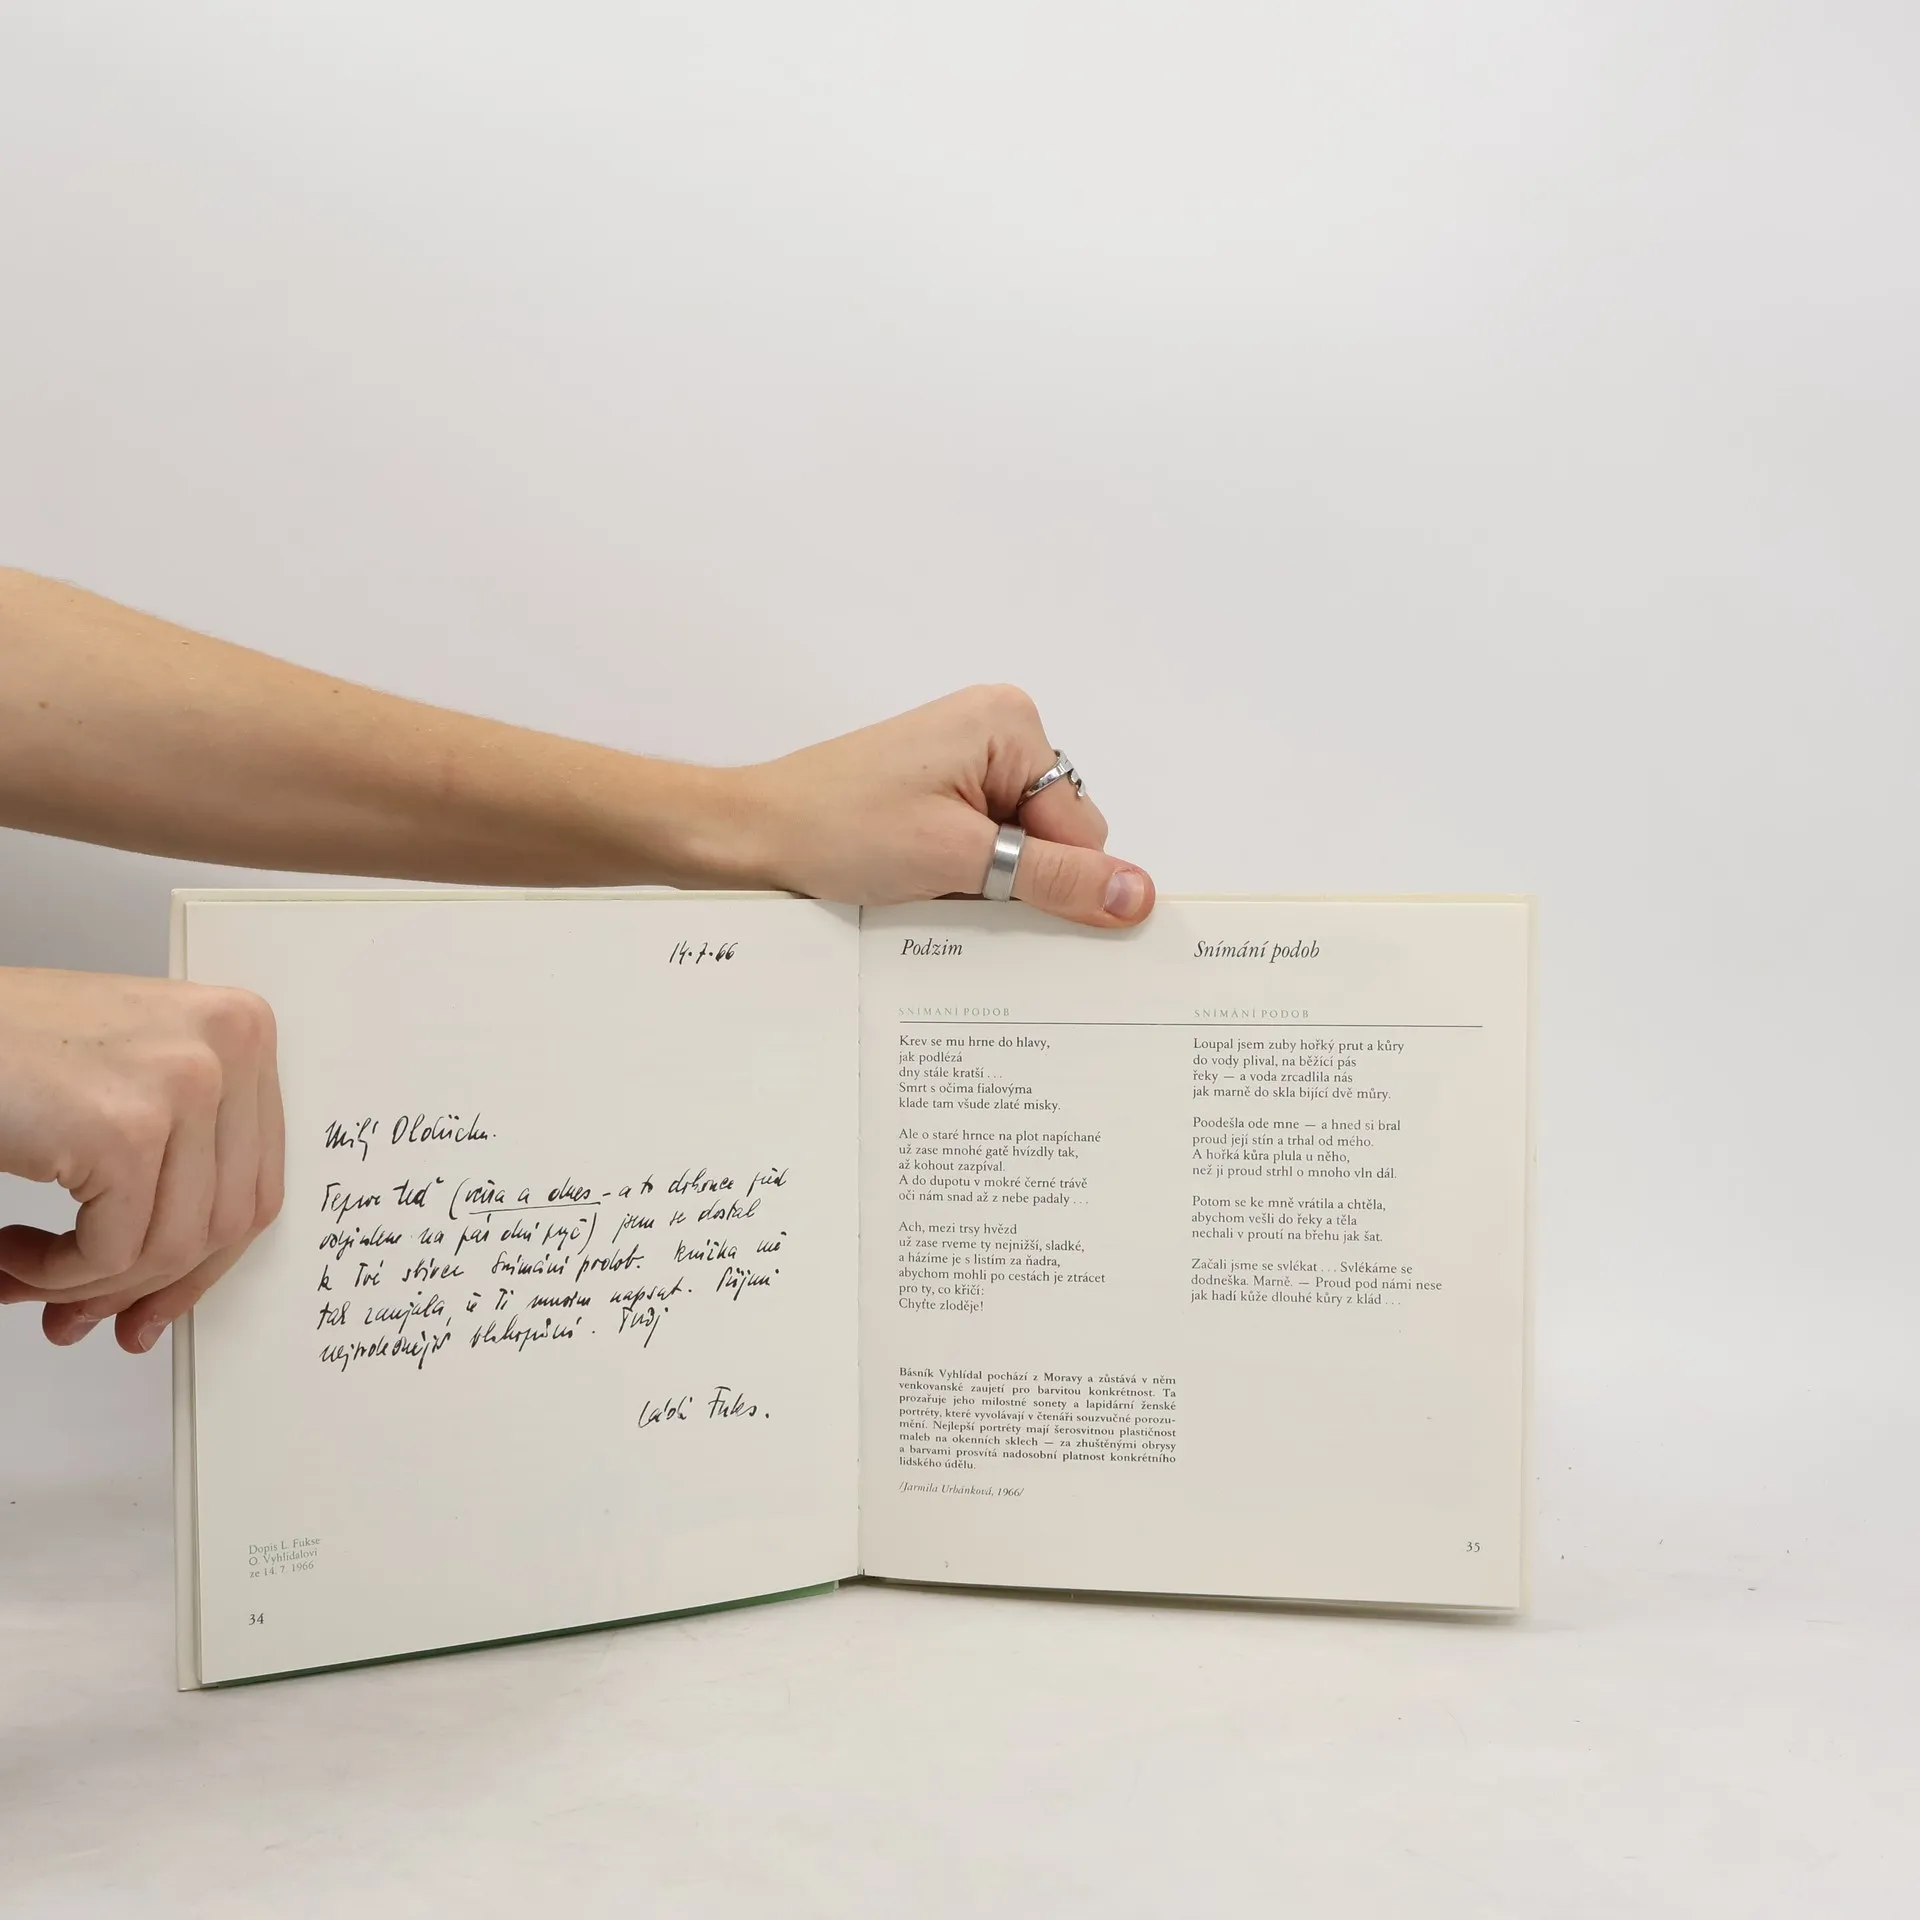 14.7.66
Milý Oldřichu.
Teprve teď (včera a dnes - a to dokonce před
na pár dní pryč) jsem se dostal
k Tvé sbírce Snímání podob. Knížka mě
tak zaujala, že Ti musím napsat. Přijmi
nejsrdečnější blahopřání. Tvůj
Láďa Fuks.
Dopis L. Fukse
O. Vyhlídalovi
ze 14. 7. 1966
34
Podzim
SNÍMÁNÍ PODOB
Krev se mu hrne do hlavy,
jak podlézá
dny stále kratší . . .
Smrt s očima fialovýma
klade tam všude zlaté misky.
Ale o staré hrnce na plot napíchané
už zase mnohé gatě hvízdly tak,
až kohout zazpíval.
A do dupotu v mokré černé trávě
oči nám snad až z nebe padaly . . .
Ach, mezi trsy hvězd
už zase rveme ty nejnižší, sladké,
a házíme je s listím za ňadra,
abychom mohli po cestách je ztrácet
pro ty, co křičí:
Chyťte zloděje!
Básník Vyhlídal pochází z Moravy a zůstává v něm
venkovské zaujetí pro barvitou konkrétnost. Ta
prozařuje jeho milostné sonety a lapidární ženské
portréty, které vyvolávají v čtenáři souzvučné porozu-
mění. Nejlepší portréty mají šerosvitnou plastičnost
maleb na okenních sklech — za zhuštěnými obrysy
a barvami prosvítá nadosobní platnost konkrétního
lidského údělu.
/Jarmila Urbánková, 1966/
Snímání podob
SNÍMÁNÍ PODOB
Loupal jsem zuby hořký prut a kůry
do vody plival, na běžící pás
řeky — a voda zrcadlila nás
jak marně do skla bijící dvě můry.
Poodešla ode mne — a hned si bral
proud její stín a trhal od mého.
A hořká kůra plula u něho,
než ji proud strhl o mnoho vln dál.
Potom se ke mně vrátila a chtěla,
abychom vešli do řeky a těla
nechali v proutí na břehu jak šat.
Začali jsme se svlékat . . . Svlékáme se
dodneška. Marně. — Proud pod námi nese
jak hadí kůže dlouhé kůry z klád . . .
35